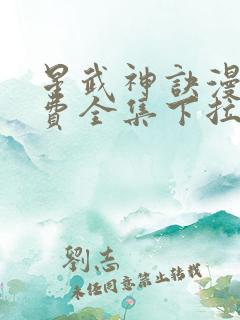 星武神訣漫
費全集下拉
劉志
未經同意禁止轉載